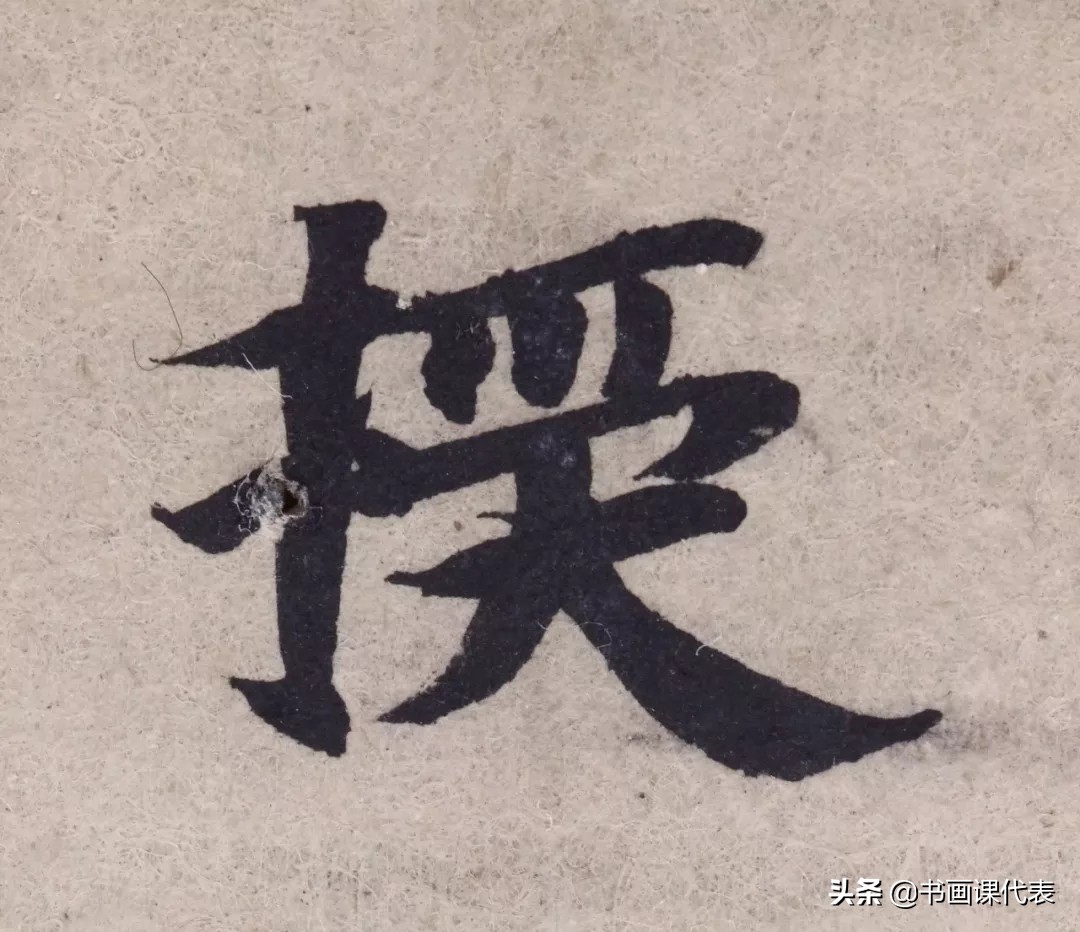 授
头条 @书画课代表